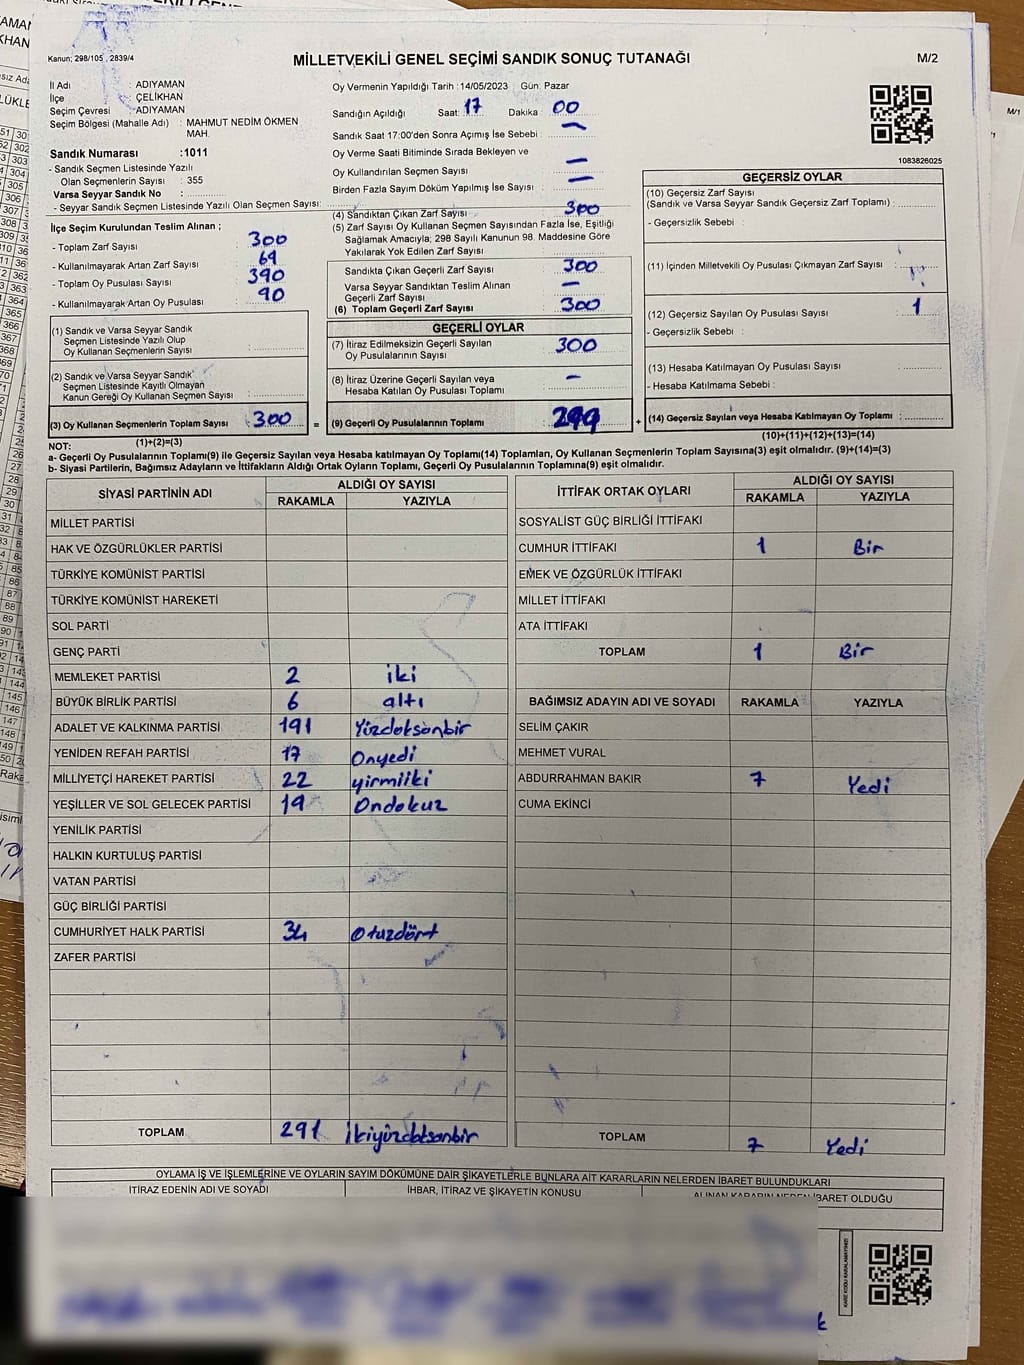 Kanun; 298/105 , 2839/4
MİLLETVEKİLİ GENEL SEÇİMİ SANDIK SONUÇ TUTANAĞI
M/2
İl Adı : ADIYAMAN
İlçe : ÇELİKHAN
Seçim Çevresi : ADIYAMAN
Seçim Bölgesi (Mahalle Adı) : MAHMUT NEDİM ÖKMEN MAH.
Sandık Numarası :1011
- Sandık Seçmen Listesinde Yazılı
Olan Seçmenlerin Sayısı : 355
Varsa Seyyar Sandık No :
- Seyyar Sandık Seçmen Listesinde Yazılı Olan Seçmen Sayısı:
Oy Vermenin Yapıldığı Tarih :14/05/2023 Gün: Pazar
Sandığın Açıldığı Saat: 17 Dakika : 00
Sandık Saat 17:00'den Sonra Açımış İse Sebebi : —
Oy Verme Saati Bitiminde Sırada Bekleyen ve
Oy Kullandırılan Seçmen Sayısı : —
Birden Fazla Sayım Döküm Yapılmış İse Sayısı : —
1083826025
İlçe Seçim Kurulundan Teslim Alınan ;
- Toplam Zarf Sayısı : 300
- Kullanılmayarak Artan Zarf Sayısı : 69
- Toplam Oy Pusulası Sayısı : 390
- Kullanılmayarak Artan Oy Pusulası : 90
(1) Sandık ve Varsa Seyyar Sandık
Seçmen Listesinde Yazılı Olup
Oy Kullanan Seçmenlerin Sayısı :
(2) Sandık ve Varsa Seyyar Sandık
Seçmen Listesinde Kayıtlı Olmayan
Kanun Gereği Oy Kullanan Seçmen Sayısı :
(3) Oy Kullanan Seçmenlerin Toplam Sayısı : 300
(1)+(2)=(3)
(4) Sandıktan Çıkan Zarf Sayısı : 300
(5) Zarf Sayısı Oy Kullanan Seçmen Sayısından Fazla İse, Eşitliği
Sağlamak Amacıyla; 298 Sayılı Kanunun 98. Maddesine Göre
Yakılarak Yok Edilen Zarf Sayısı :
Sandıkta Çıkan Geçerli Zarf Sayısı : 300
Varsa Seyyar Sandıktan Teslim Alınan
Geçerli Zarf Sayısı : —
(6) Toplam Geçerli Zarf Sayısı : 300
GEÇERLİ OYLAR
(7) İtiraz Edilmeksizin Geçerli Sayılan
Oy Pusulalarının Sayısı : 300
(8) İtiraz Üzerine Geçerli Sayılan veya
Hesaba Katılan Oy Pusulası Toplamı : —
= (9) Geçerli Oy Pusulalarının Toplamı : 299
GEÇERSİZ OYLAR
(10) Geçersiz Zarf Sayısı
(Sandık ve Varsa Seyyar Sandık Geçersiz Zarf Toplamı) :
- Geçersizlik Sebebi :
(11) İçinden Milletvekili Oy Pusulası Çıkmayan Zarf Sayısı :
(12) Geçersiz Sayılan Oy Pusulası Sayısı : 1
- Geçersizlik Sebebi :
(13) Hesaba Katılmayan Oy Pusulası Sayısı :
- Hesaba Katılmama Sebebi :
+ (14) Geçersiz Sayılan veya Hesaba Katılmayan Oy Toplamı :
(10)+(11)+(12)+(13)=(14)
NOT:
a- Geçerli Oy Pusulalarının Toplamı(9) ile Geçersiz Sayılan veya Hesaba katılmayan Oy Toplamı(14) Toplamları, Oy Kullanan Seçmenlerin Toplam Sayısına(3) eşit olmalıdır. (9)+(14)=(3)
b- Siyasi Partilerin, Bağımsız Adayların ve İttifakların Aldığı Ortak Oyların Toplamı, Geçerli Oy Pusulalarının Toplamına(9) eşit olmalıdır.
SİYASİ PARTİNİN ADI
ALDIĞI OY SAYISI
RAKAMLA YAZIYLA
MİLLET PARTİSİ
HAK VE ÖZGÜRLÜKLER PARTİSİ
TÜRKİYE KOMÜNİST PARTİSİ
TÜRKİYE KOMÜNİST HAREKETİ
SOL PARTİ
GENÇ PARTİ
MEMLEKET PARTİSİ 2 iki
BÜYÜK BİRLİK PARTİSİ 6 altı
ADALET VE KALKINMA PARTİSİ 191 Yüzdoksanbir
YENİDEN REFAH PARTİSİ 17 Onyedi
MİLLİYETÇİ HAREKET PARTİSİ 22 yirmiiki
YEŞİLLER VE SOL GELECEK PARTİSİ 19 Ondokuz
YENİLİK PARTİSİ
HALKIN KURTULUŞ PARTİSİ
VATAN PARTİSİ
GÜÇ BİRLİĞİ PARTİSİ
CUMHURİYET HALK PARTİSİ 34 Otuzdört
ZAFER PARTİSİ
TOPLAM 291 ikiyüzdoksanbir
İTTİFAK ORTAK OYLARI
ALDIĞI OY SAYISI
RAKAMLA YAZIYLA
SOSYALİST GÜÇ BİRLİĞİ İTTİFAKI
CUMHUR İTTİFAKI 1 Bir
EMEK VE ÖZGÜRLÜK İTTİFAKI
MİLLET İTTİFAKI
ATA İTTİFAKI
TOPLAM 1 Bir
BAĞIMSIZ ADAYIN ADI VE SOYADI RAKAMLA YAZIYLA
SELİM ÇAKIR
MEHMET VURAL
ABDURRAHMAN BAKIR 7 Yedi
CUMA EKİNCİ
TOPLAM 7 Yedi
OYLAMA İŞ VE İŞLEMLERİNE VE OYLARIN SAYIM DÖKÜMÜNE DAİR ŞİKAYETLERLE BUNLARA AİT KARARLARIN NELERDEN İBARET BULUNDUKLARI
İTİRAZ EDENİN ADI VE SOYADI
İHBAR, İTİRAZ VE ŞİKAYETİN KONUSU
ALINAN KARARIN NEDEN İBARET OLDUĞU
KARE KODU KARALAMAYINIZ!